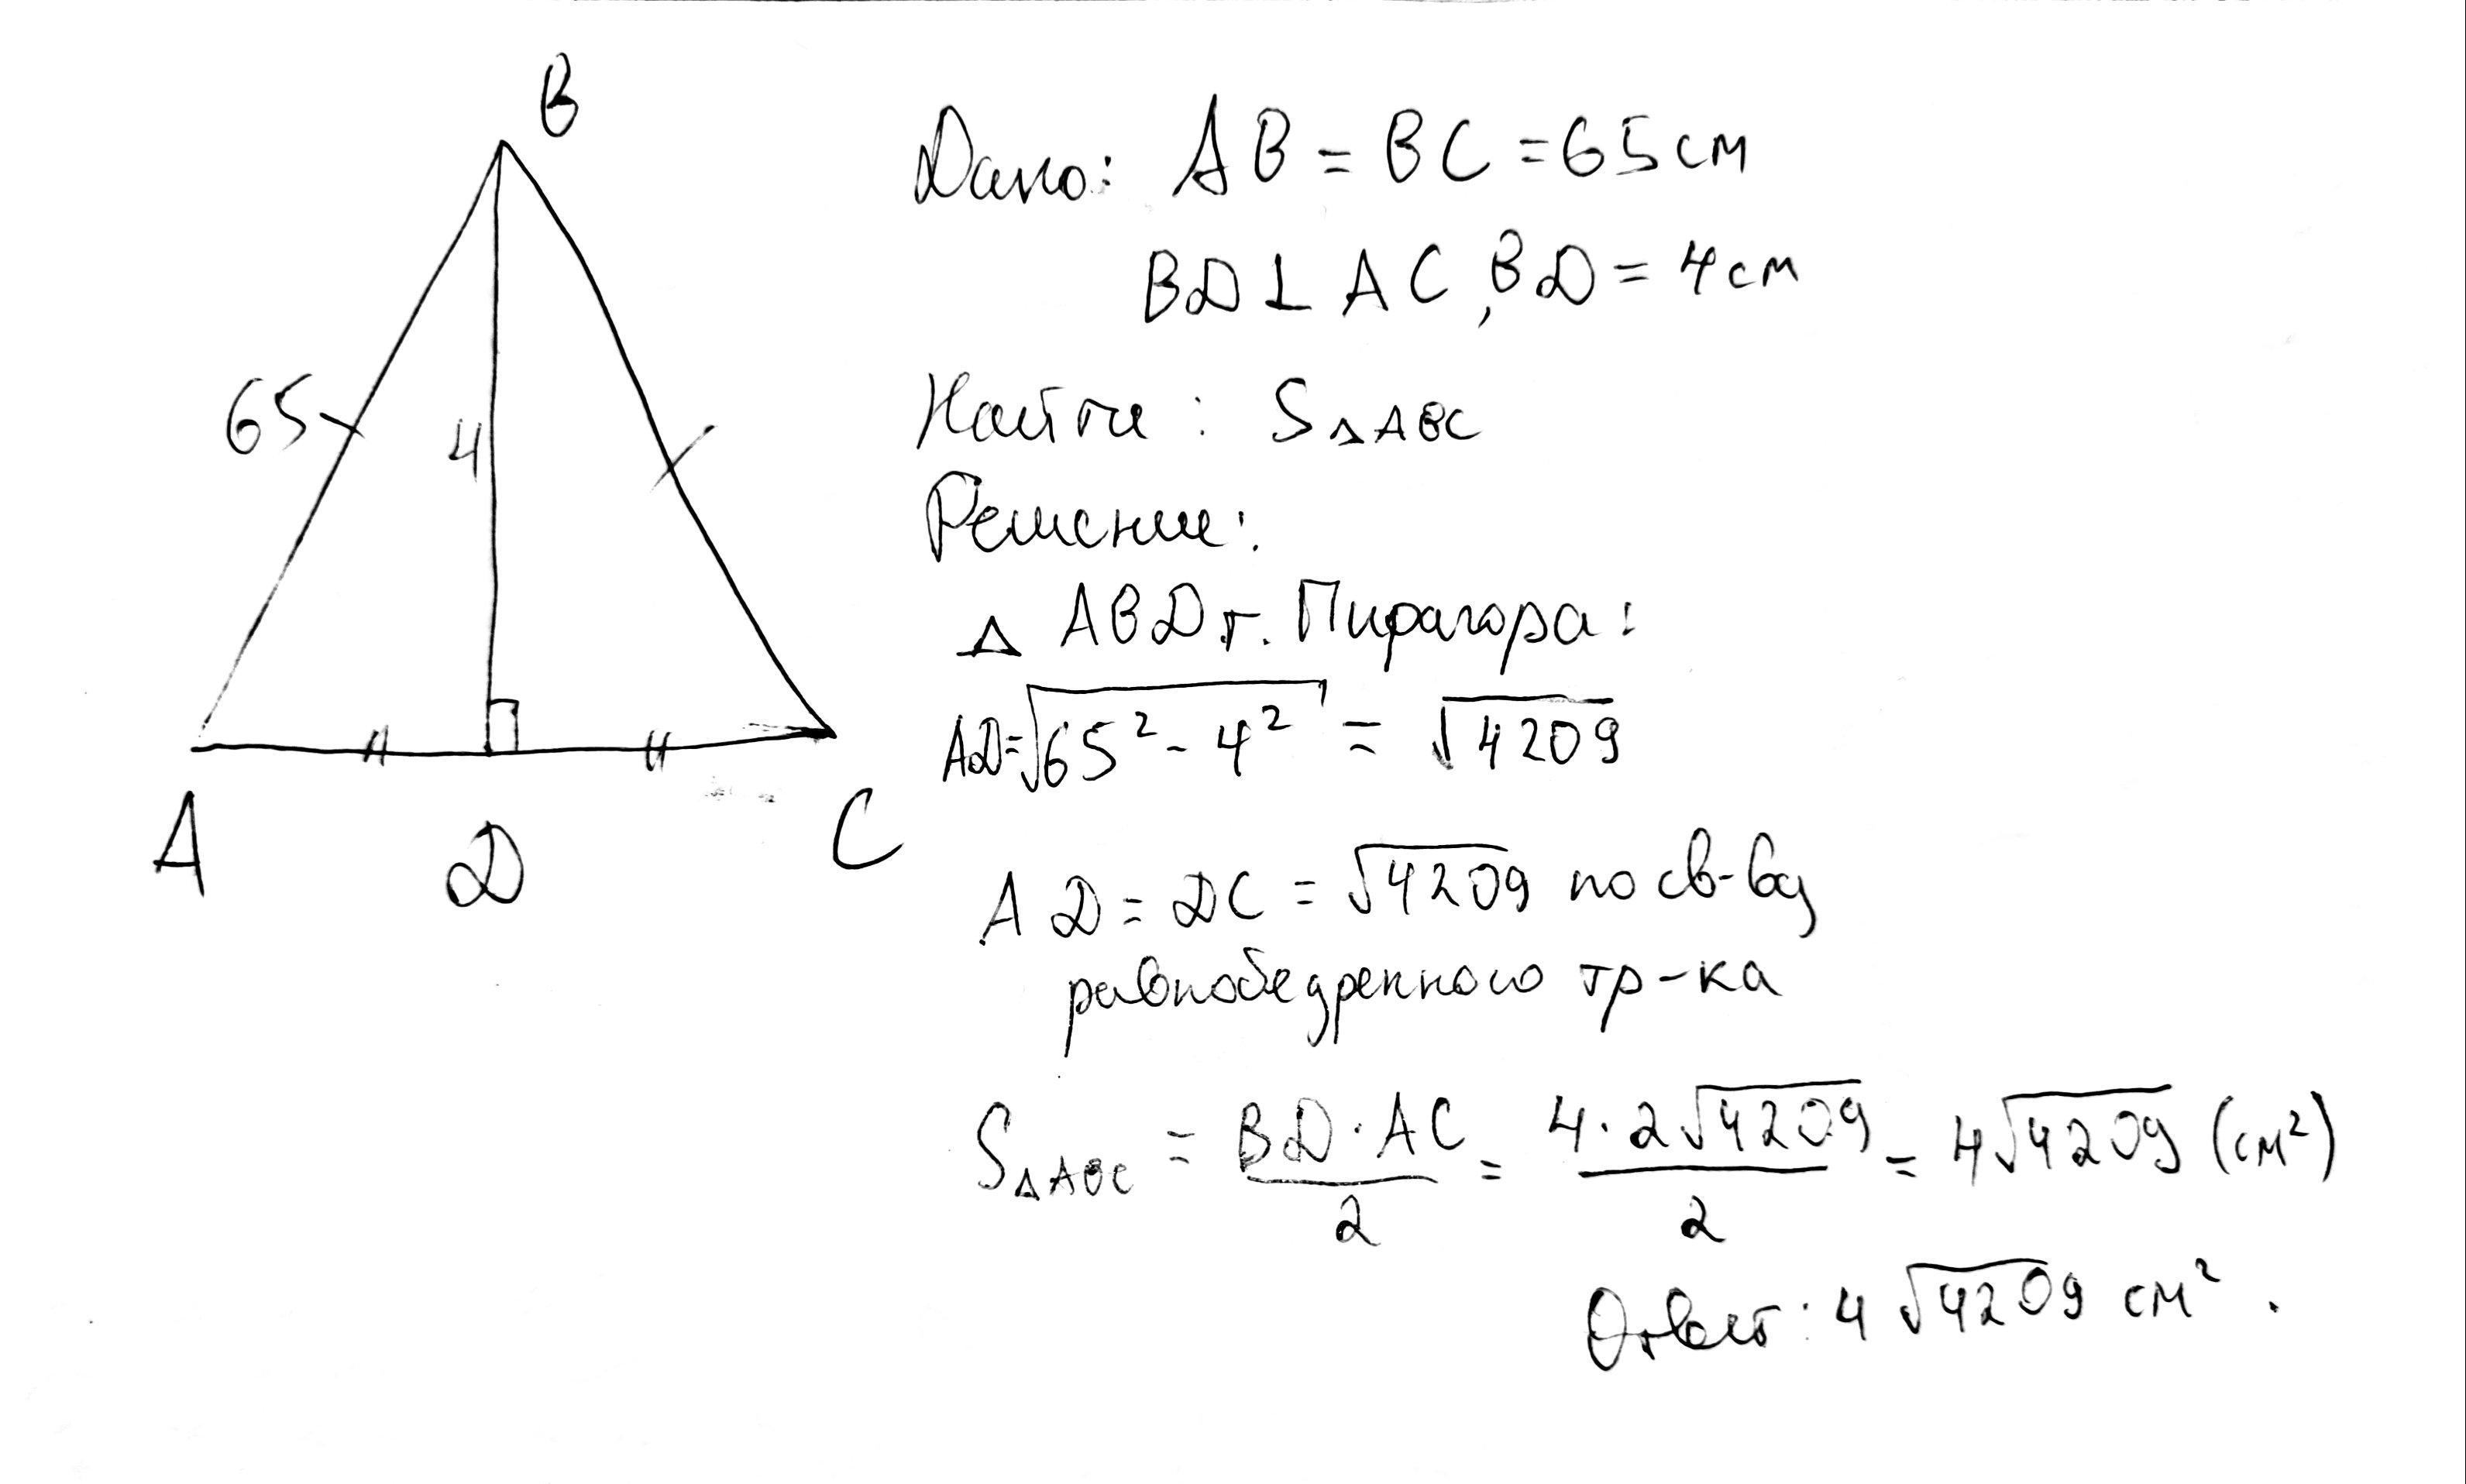 B
Дано: AB = BC = 65 см
BD ⊥ AC, BD = 4 см
65
4
Найти: S△ABC
Решение:
△ ABD т. Пифагора:
AD = √(65² - 4²) = √4209
A
D
C
AD = DC = √4209 по св-ву
равнобедренного тр-ка
S△ABC = BD · AC / 2 = 4 · 2√4209 / 2 = 4√4209 (см²)
Ответ: 4√4209 см².